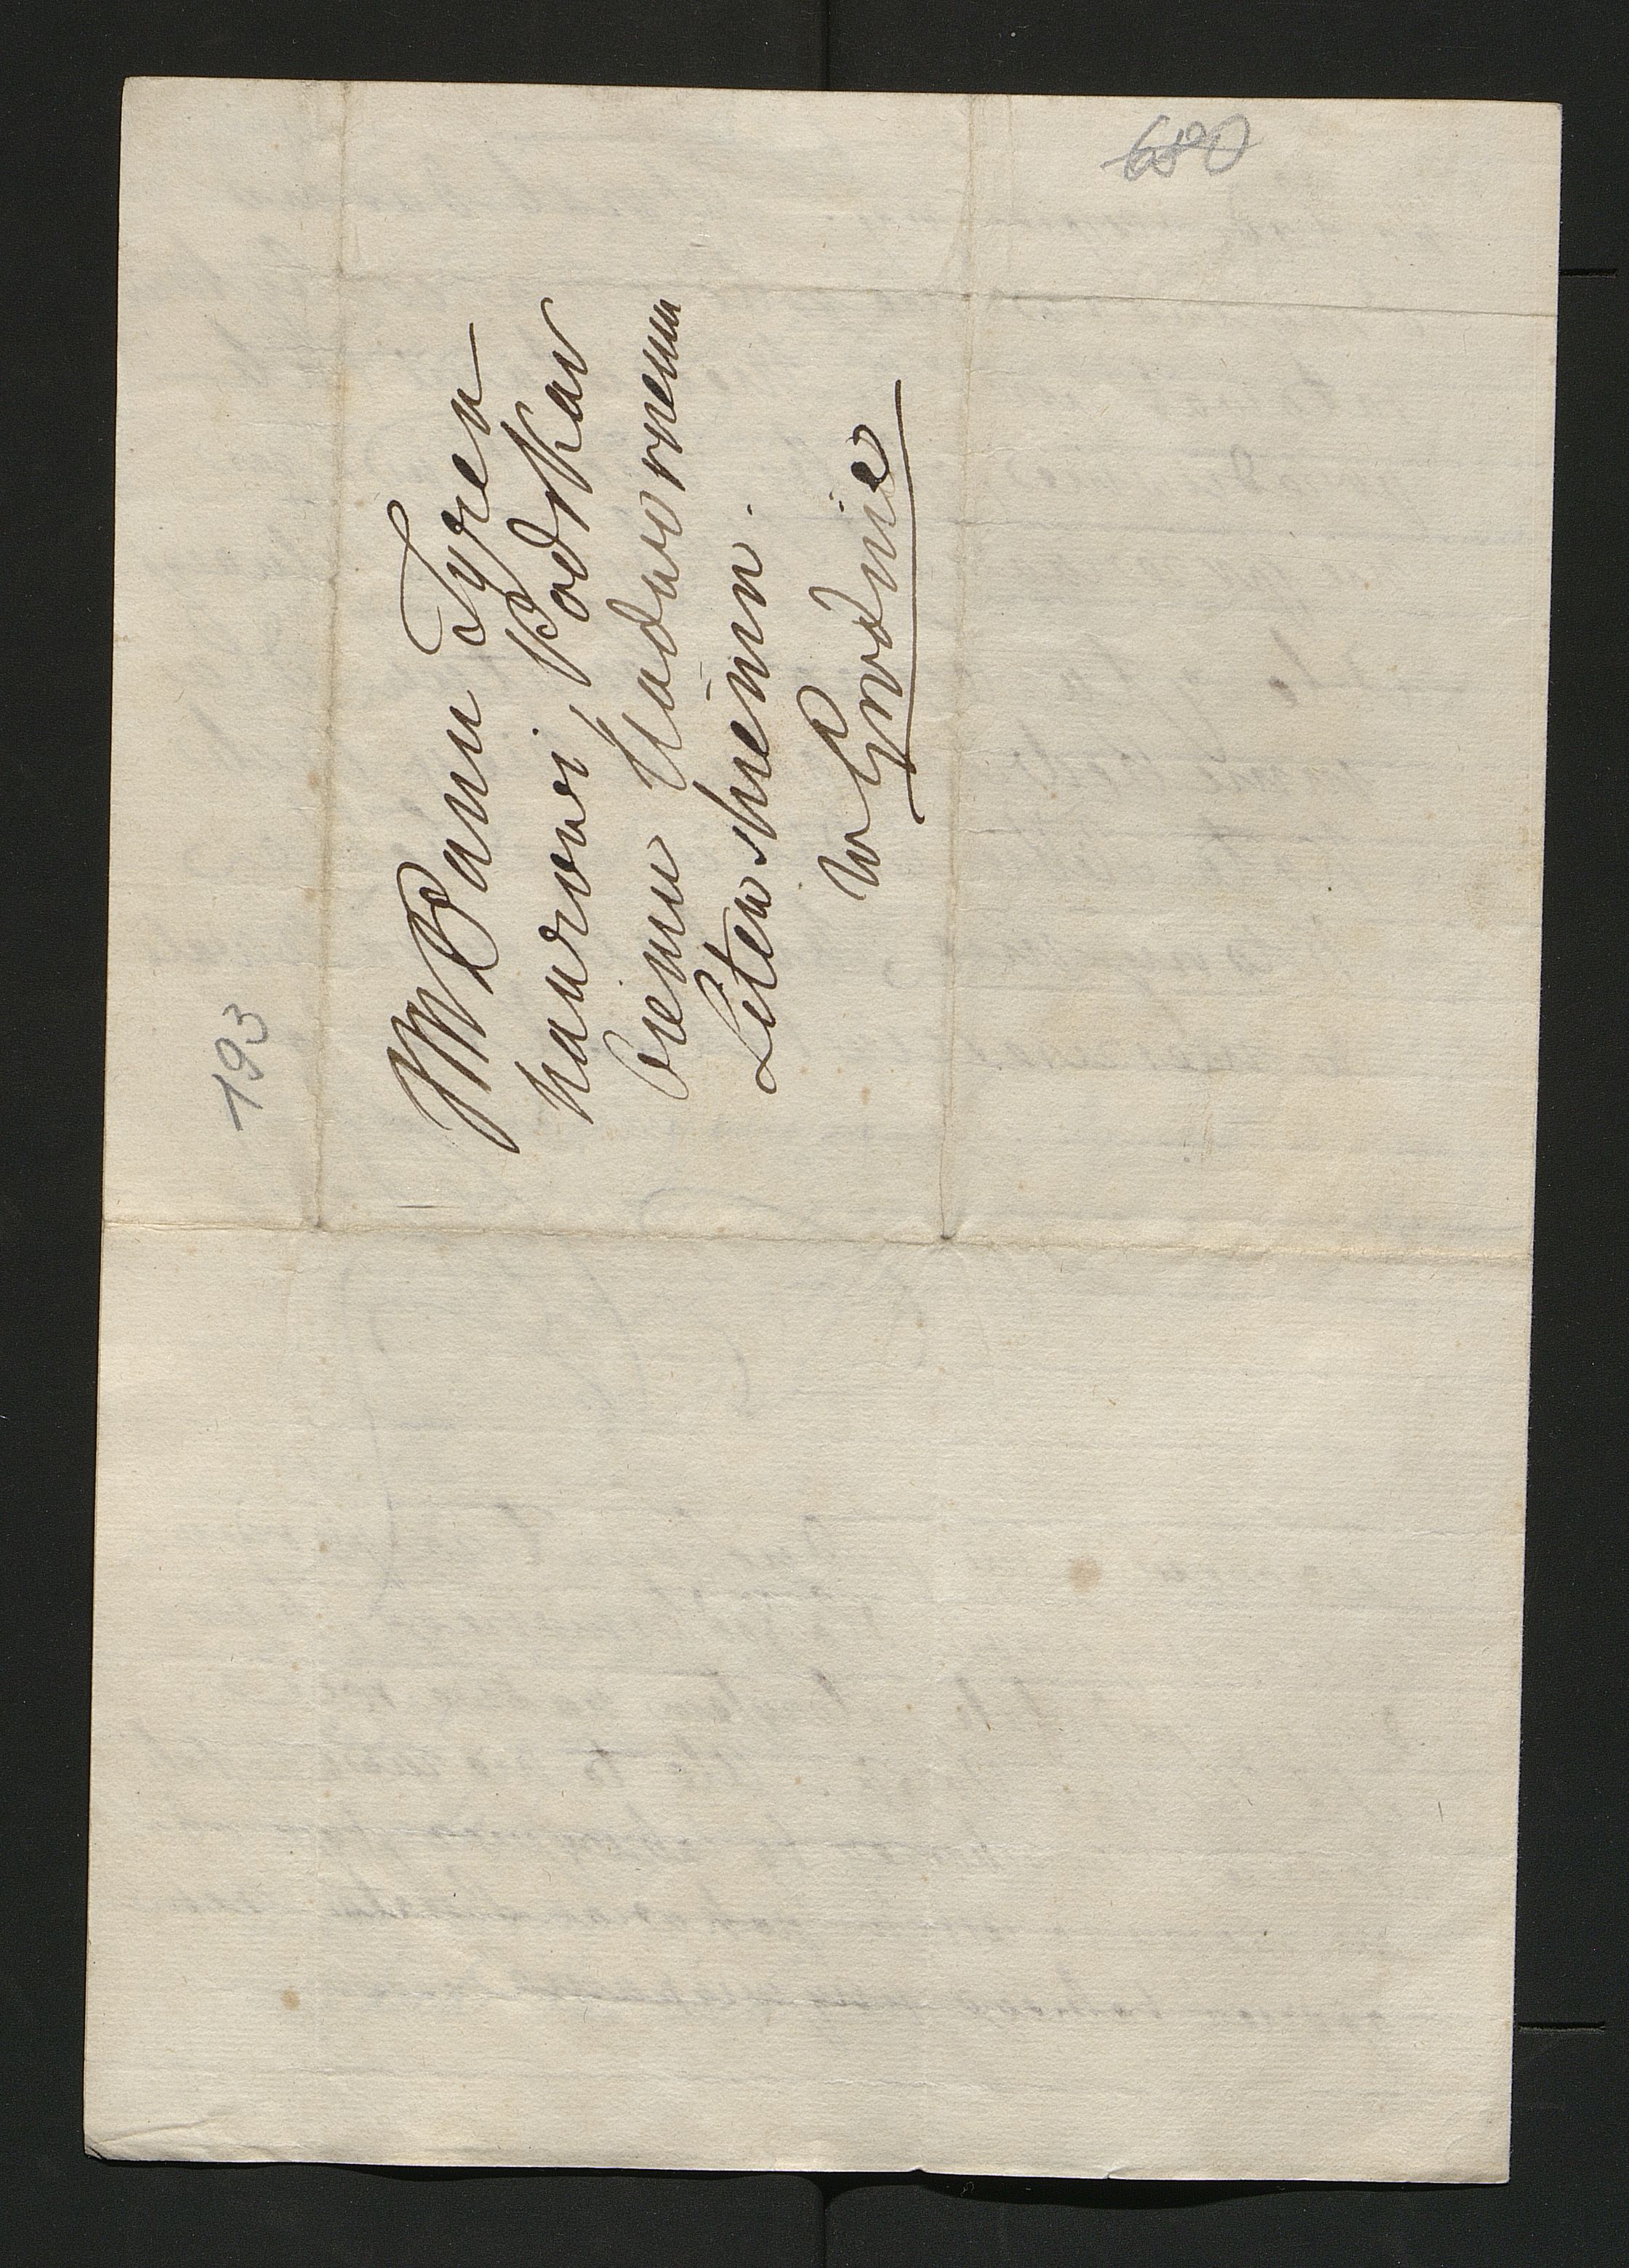 680
193
WPanu Tyzen
hauzowi, Podskar
biemu Nadwornemu
Litewskiemu.
w Grodnie